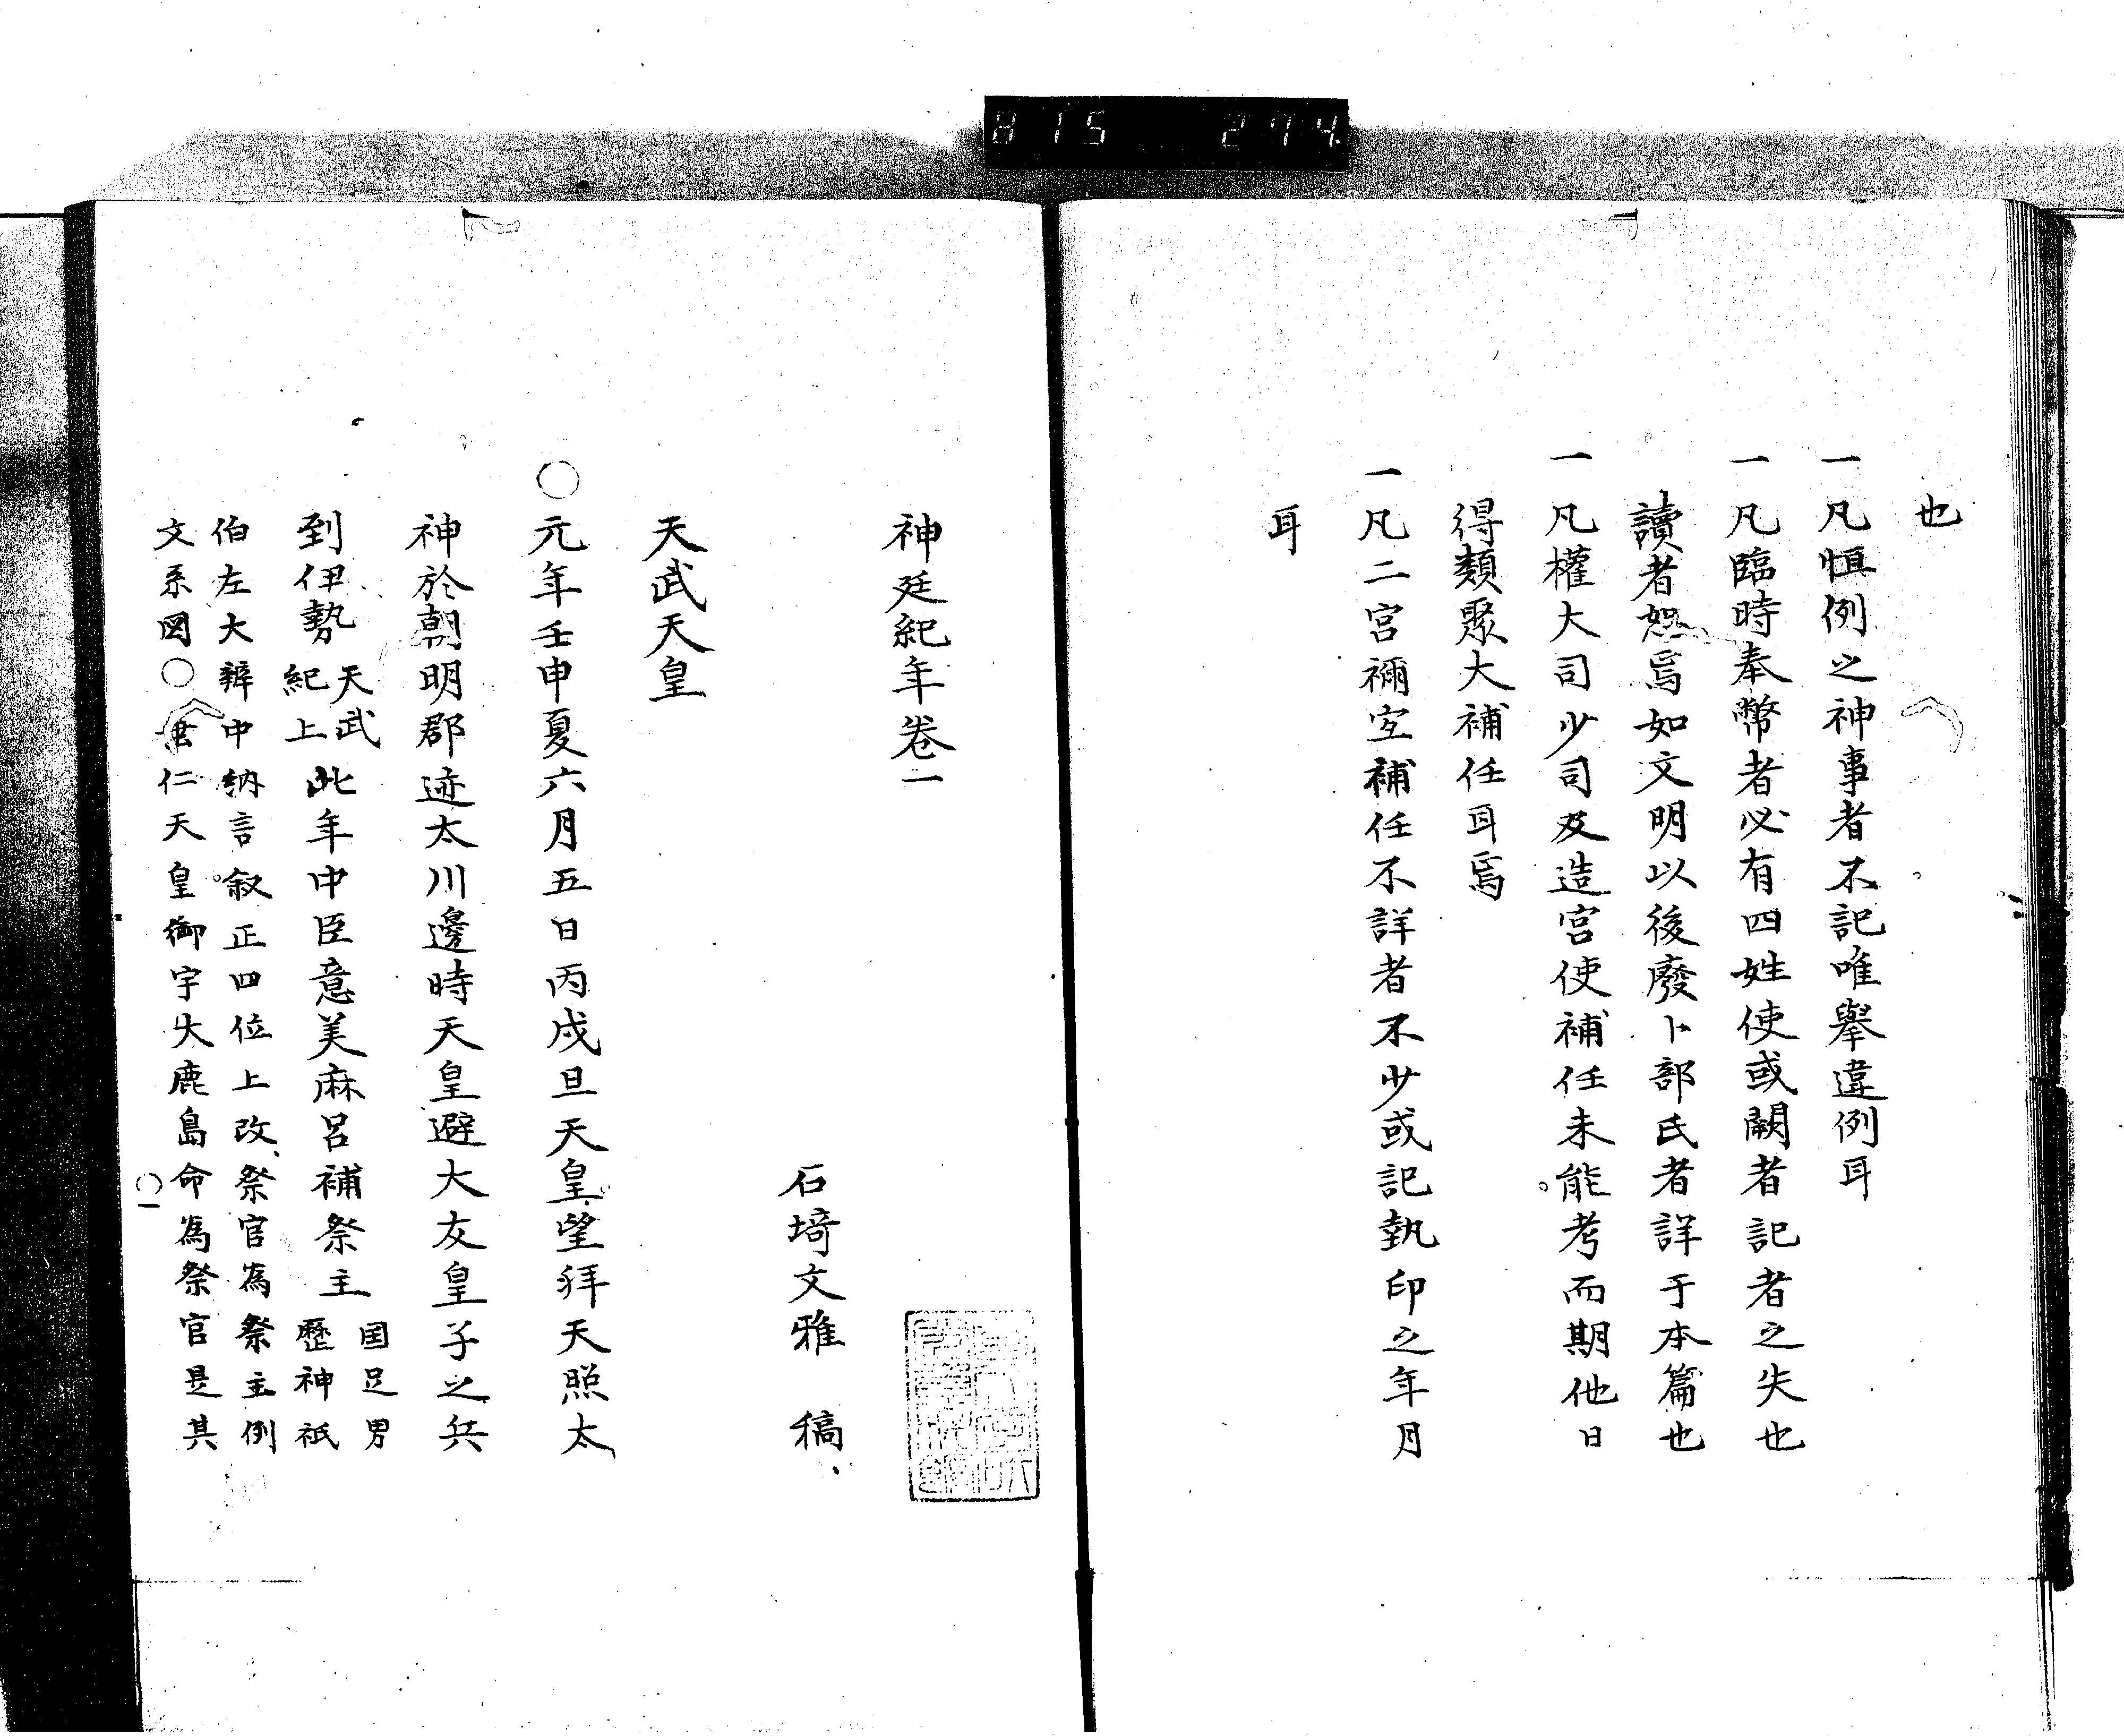 815 274
也
一凡恒例之神事者不記唯擧違例耳
一凡臨時奉幣者必有四姓使或闕者記者之失也
讀者恕焉如文明以後廢卜部氏者詳于本篇也
一凡權大司少司及造宮使補任未能考而期他日
得類聚大補任耳焉
一凡二宮禰宜補任不詳者不少或記執印之年月
耳
神廷紀年卷一
石﨑文雅 稿
天武天皇
○元年壬申夏六月五日丙戌旦天皇望拜天照太
神於朝明郡迹太川邊時天皇避大友皇子之兵
到伊勢天武紀上此年中臣意美麻呂補祭主国足男歷神祇
伯左大辨中納言叙正四位上改祭官為祭主例
文系図○垂仁天皇御宇大鹿島命為祭官是其
○一